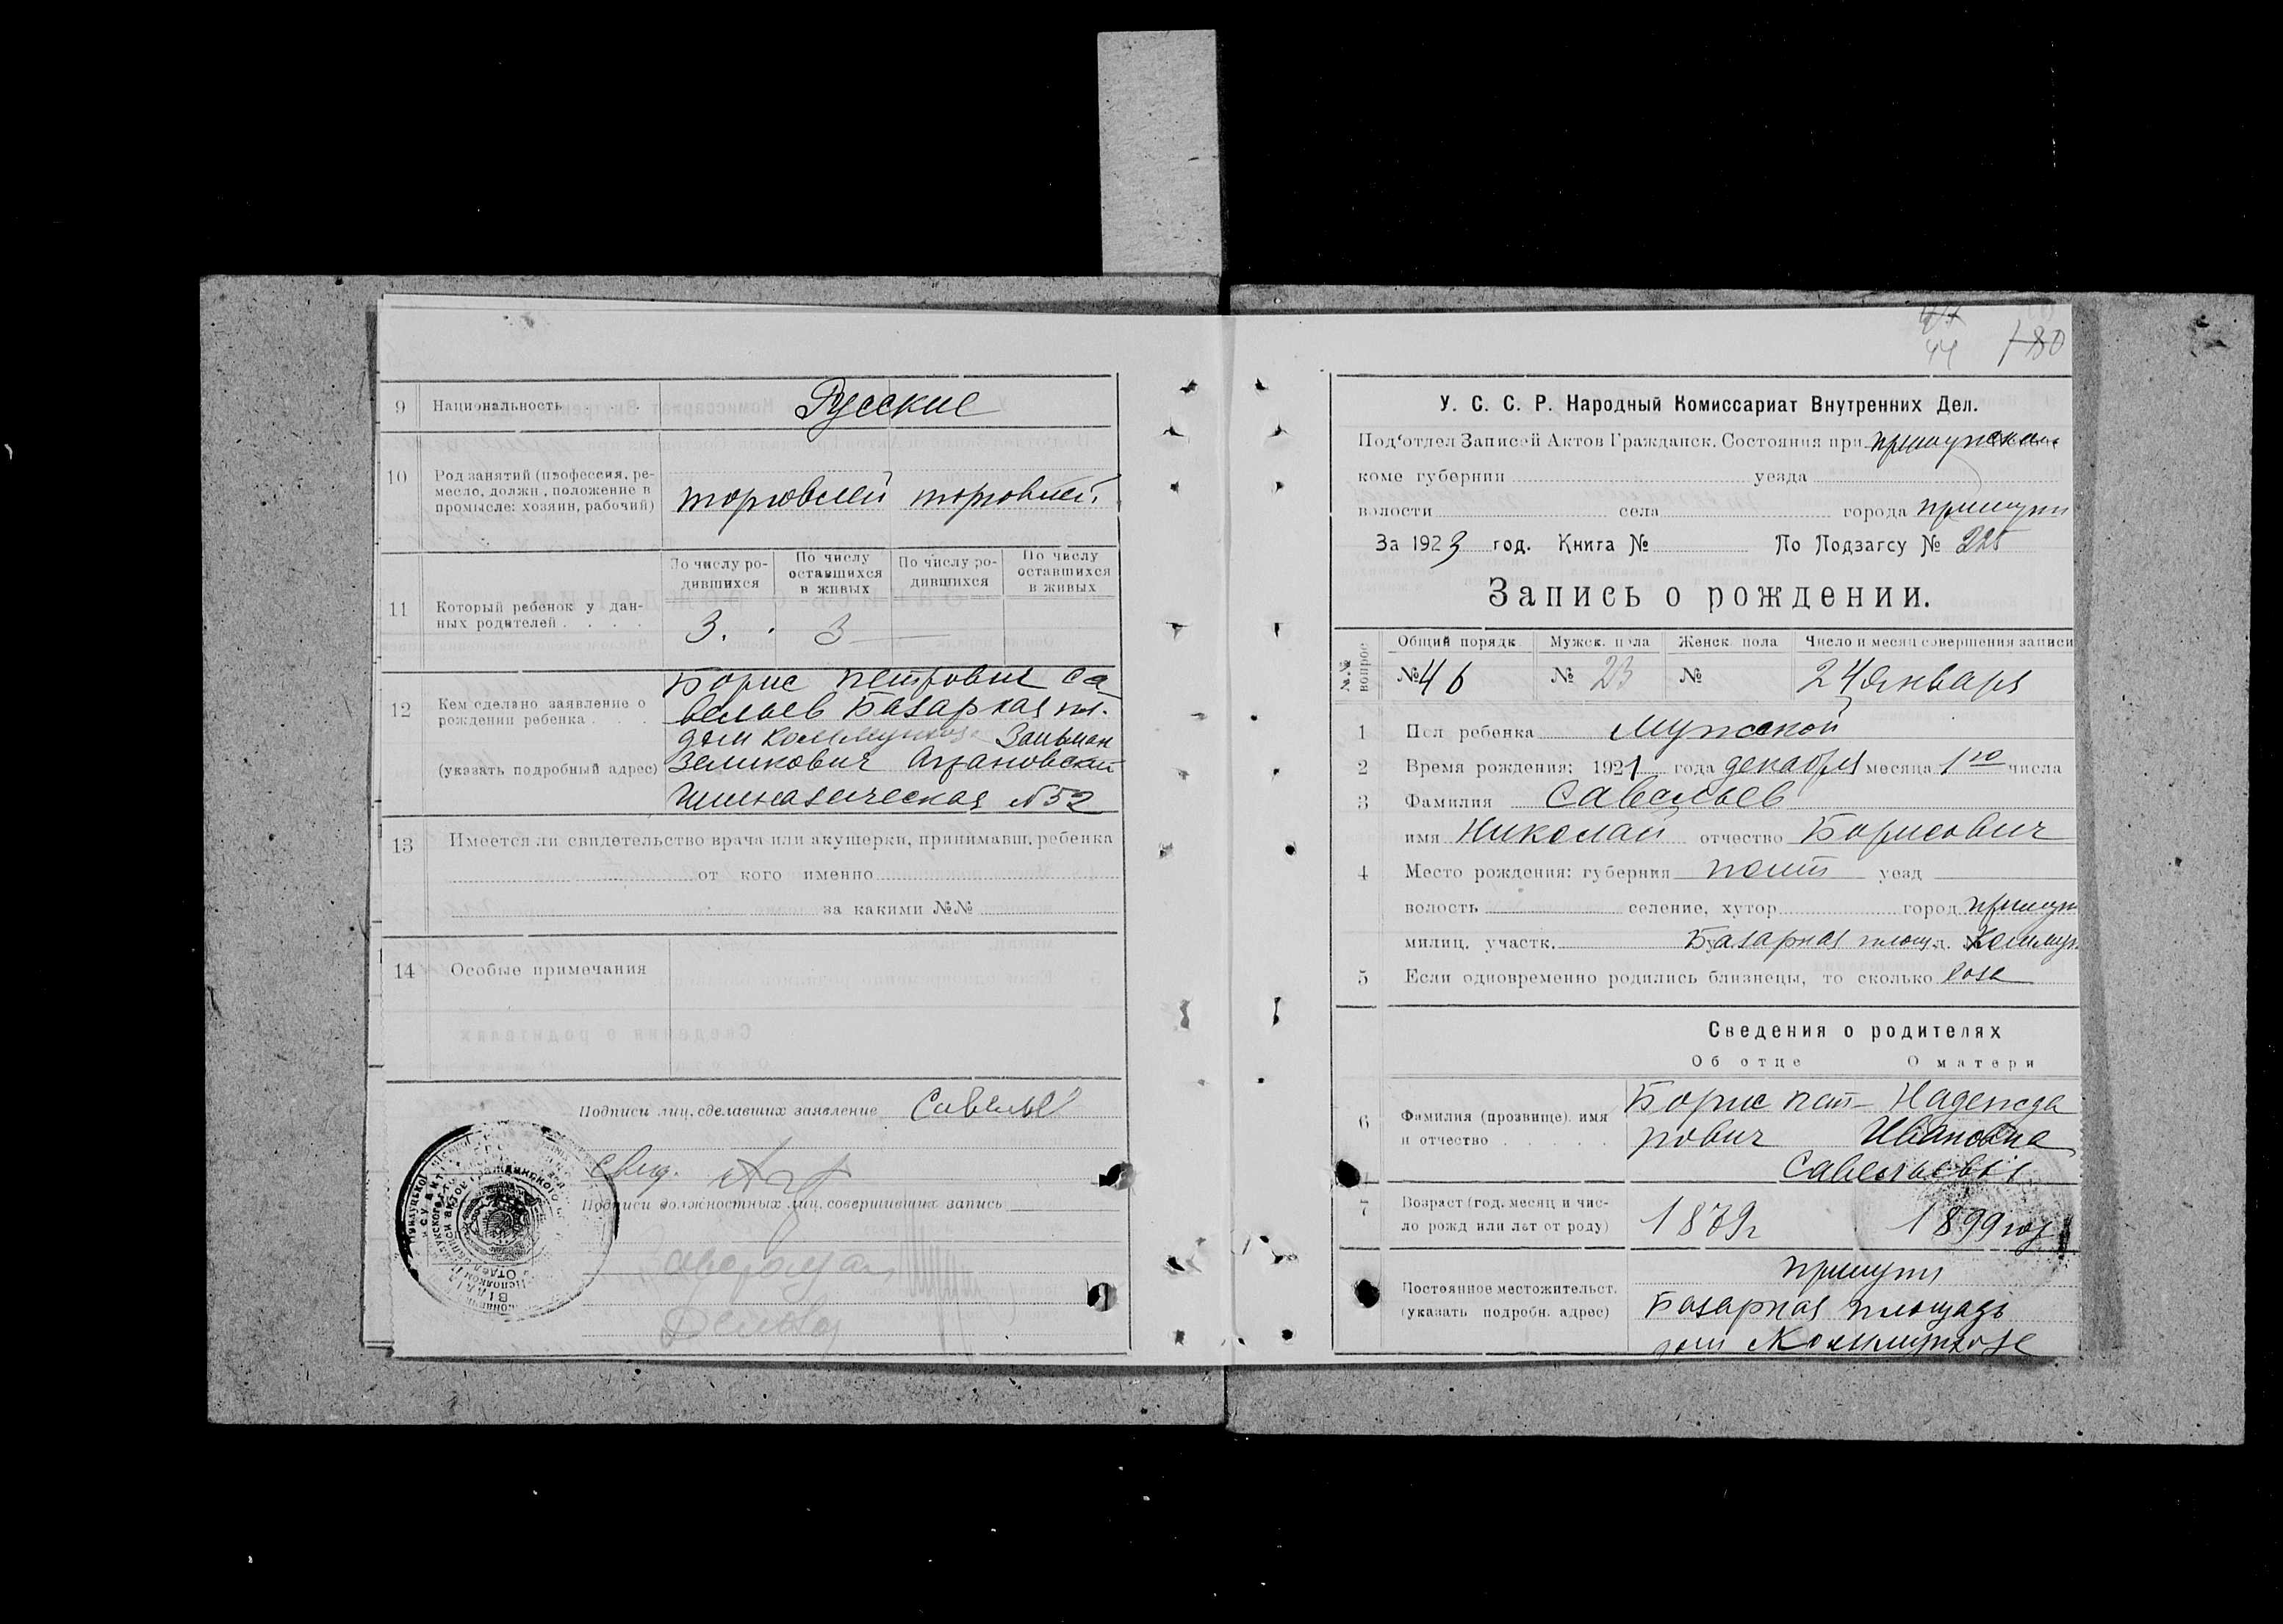 9 Национальность Русские
10 Род занятий (профессия, ре-
месло, должн., положение в
промысле: хозяин, рабочий) торговлей торговлей
11 Который ребенок у дан-
ных родителей
По числу ро-
дившихся
По числу
оставшихся
в живых
По числу ро-
дившихся
По числу
оставшихся
в живых
3. 3
12 Кем сделано заявление о
рождении ребенка
(указать подробный адрес)
Борис Петрович Са
вельев Базарная пл.
дом Зальман
Зеликович Аграновский
Гимназическая №52
13 Имеется ли свидетельство врача или акушерки, принимавш. ребенка
от кого именно
за какими №№
14 Особые примечания
Подписи лиц, сделавших заявление Савельев
Свид.
Подписи должностных лиц, совершивших запись
44 180
У. С. С. Р. Народный Комиссариат Внутренних Дел.
Под'отдел Записей Актов Гражданск. Состояния при
коме губернии уезда
волости села города
За 1923 год. Книга № По Подзагсу № 225
Запись о рождении.
№№ вопрос.
Общий порядк Мужск. пола Женск. пола Число и месяц совершения записи
№ 46 № 23 № 24 января
1 Пол ребенка Мужской
2 Время рождения: 1921 года декабря месяца 1го числа
3 Фамилия Савельев
имя Николай отчество Борисович
4 Место рождения: губерния полт уезд
волость селение, хутор город
милиц. участк. Базарная площ. д.
5 Если одновременно родились близнецы, то сколько
Сведения о родителях
Об отце О матери
6 Фамилия (прозвище), имя
и отчество
Борис Пет- Надежда
рович Ивановна
Савельевы
7 Возраст (год, месяц и чис-
ло рожд или лет от роду) 1879г 1899 год
Постоянное местожительст.
(указать подробн. адрес)
Базарная площадь
дом